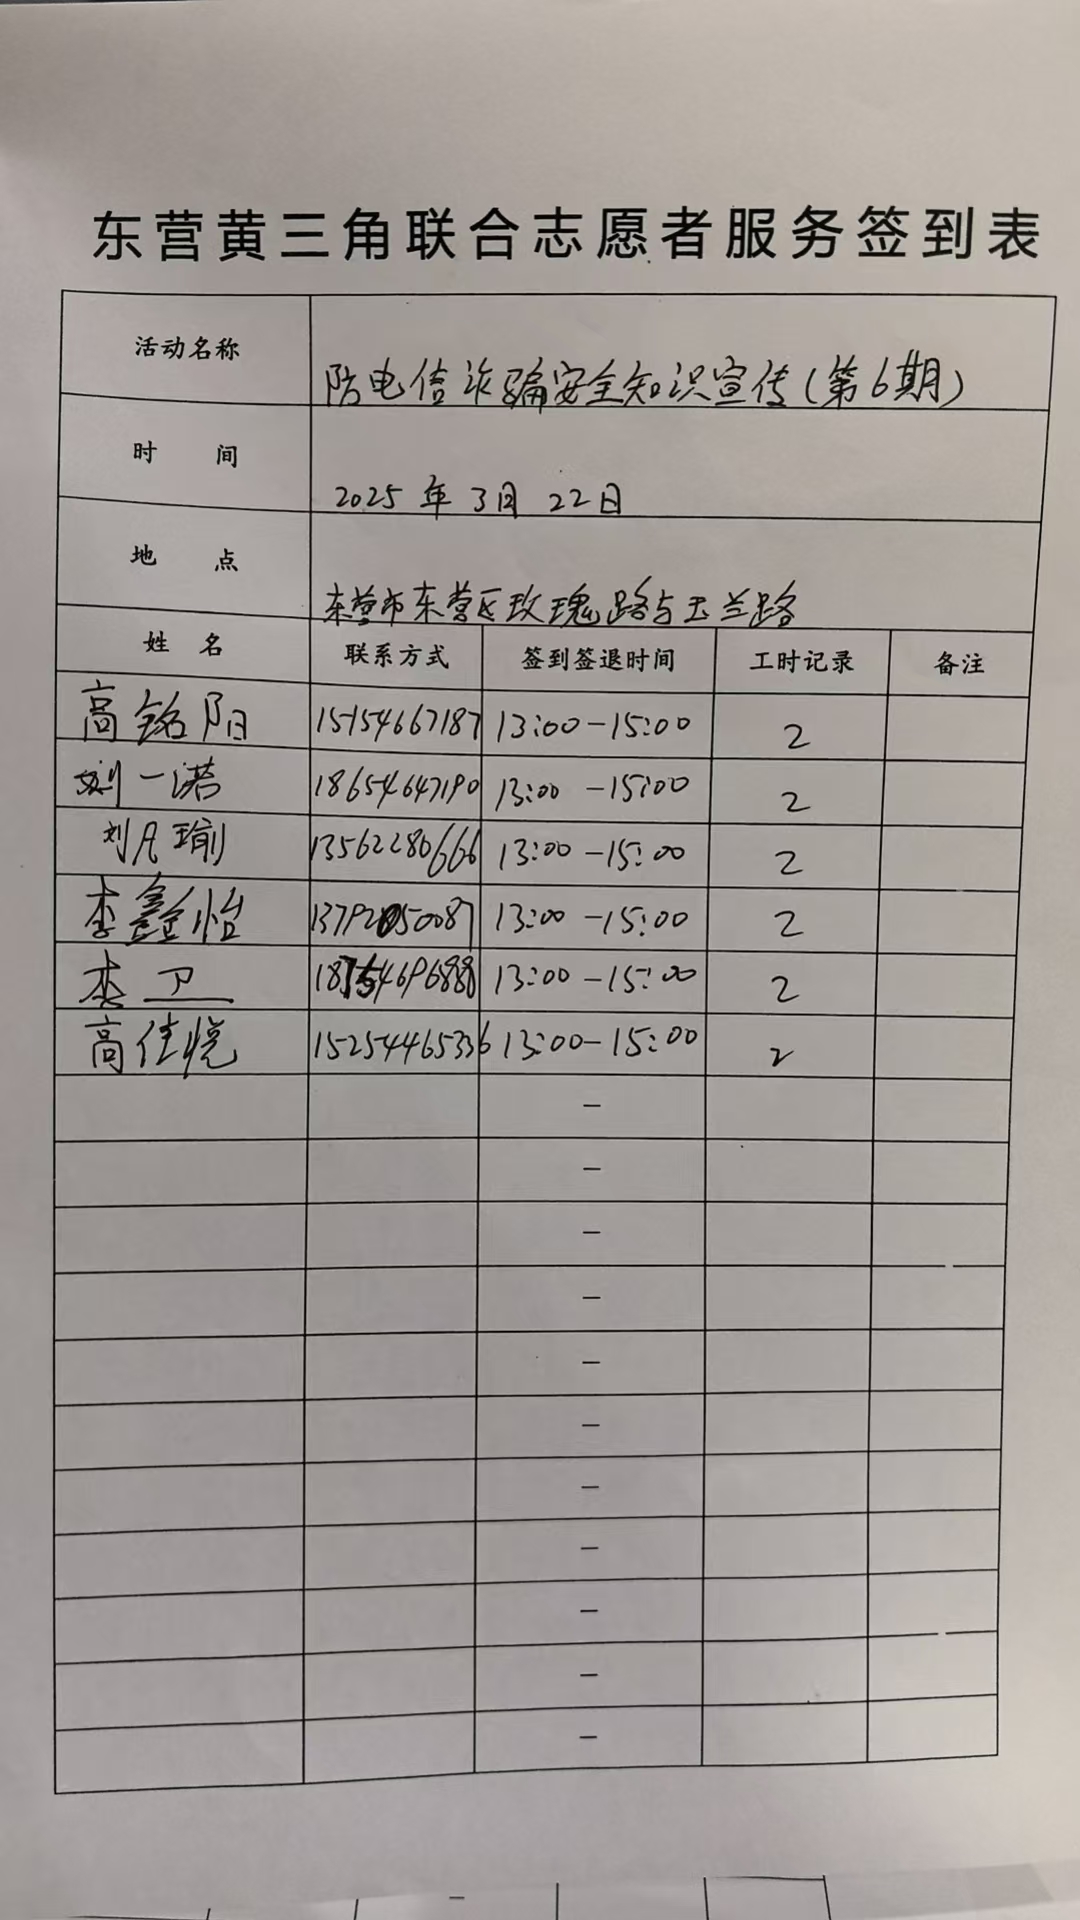 东营黄三角联合志愿者服务签到表
活动名称 防电信诈骗安全知识宣传(第6期)
时 间 2025年3月22日
地 点 东营市东营区玫瑰路与玉兰路
姓 名 联系方式 签到签退时间 工时记录 备注
高铭阳 15154667187 13:00-15:00 2
刘一诺 18654647190 13:00-15:00 2
刘凡瑜 13562280666 13:00-15:00 2
李鑫怡 13792050087 13:00-15:00 2
李卫 13:00-15:00 2
高佳悦 15254465336 13:00-15:00 2
-
-
-
-
-
-
-
-
-
-
-